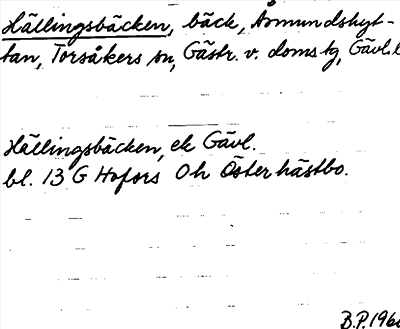 Hällingsbäcken, bäck, Åsmundshyt-
tan, Torsåkers sn, Gästr. v. doms tg, Gävl. l
Hällingsbäcken, ek Gävl.
bl. 13 G Hofors Oh Österhästbo.
B.P. 196